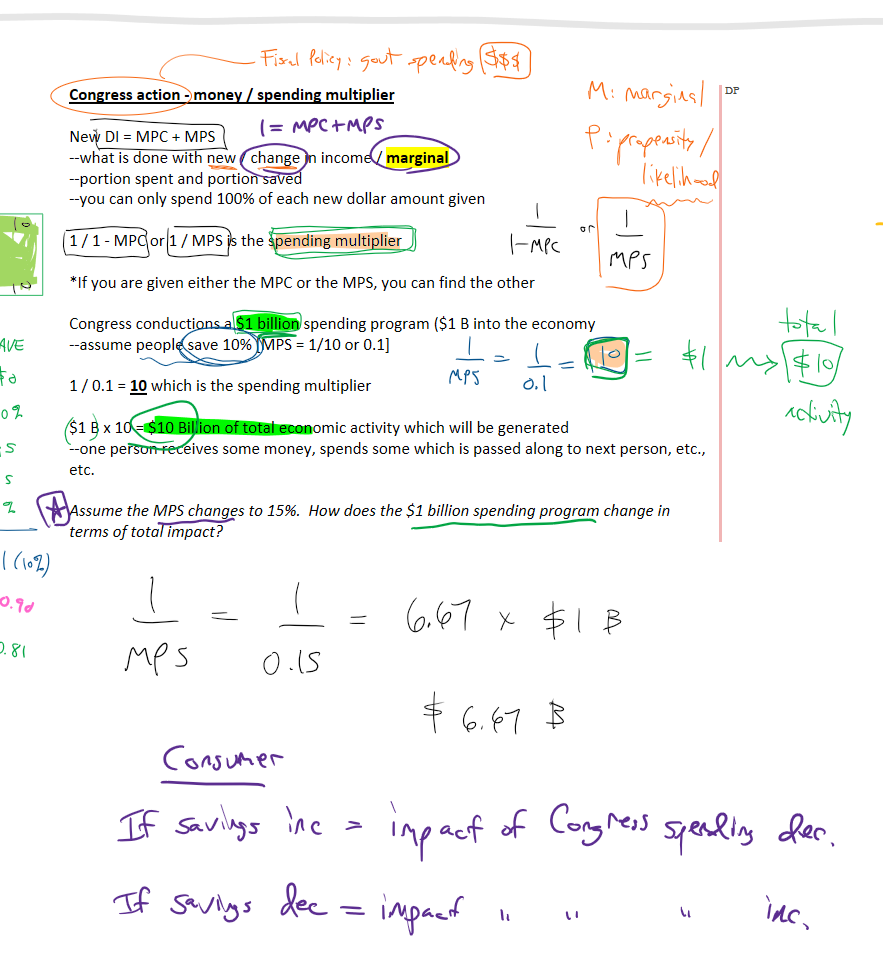 Fiscal Policy: govt spending $$$
Congress action - money / spending multiplier
M: marginal
DP
New DI = MPC + MPS
1 = MPC + MPS
P: propensity /
likelihood
--what is done with new / change in income / marginal
--portion spent and portion saved
--you can only spend 100% of each new dollar amount given
1 / 1 - MPC or 1 / MPS is the spending multiplier
1 / 1-MPC or 1 / MPS
*If you are given either the MPC or the MPS, you can find the other
Congress conductions a $1 billion spending program ($1 B into the economy
--assume people save 10% [MPS = 1/10 or 0.1]
1 / MPS = 1 / 0.1 = 10 = $1 → $10
total
activity
1 / 0.1 = 10 which is the spending multiplier
($1 B) x 10 = $10 Billion of total economic activity which will be generated
--one person receives some money, spends some which is passed along to next person, etc.,
etc.
Assume the MPS changes to 15%.  How does the $1 billion spending program change in
terms of total impact?
10
10
AVE
0%
S
S
%
1 (10%)
0.90
0.81
1 / MPS = 1 / 0.15 = 6.67 x $1 B
$ 6.67 B
Consumer
If savings inc = impact of Congress spending dec.
If savings dec = impact " " " inc.